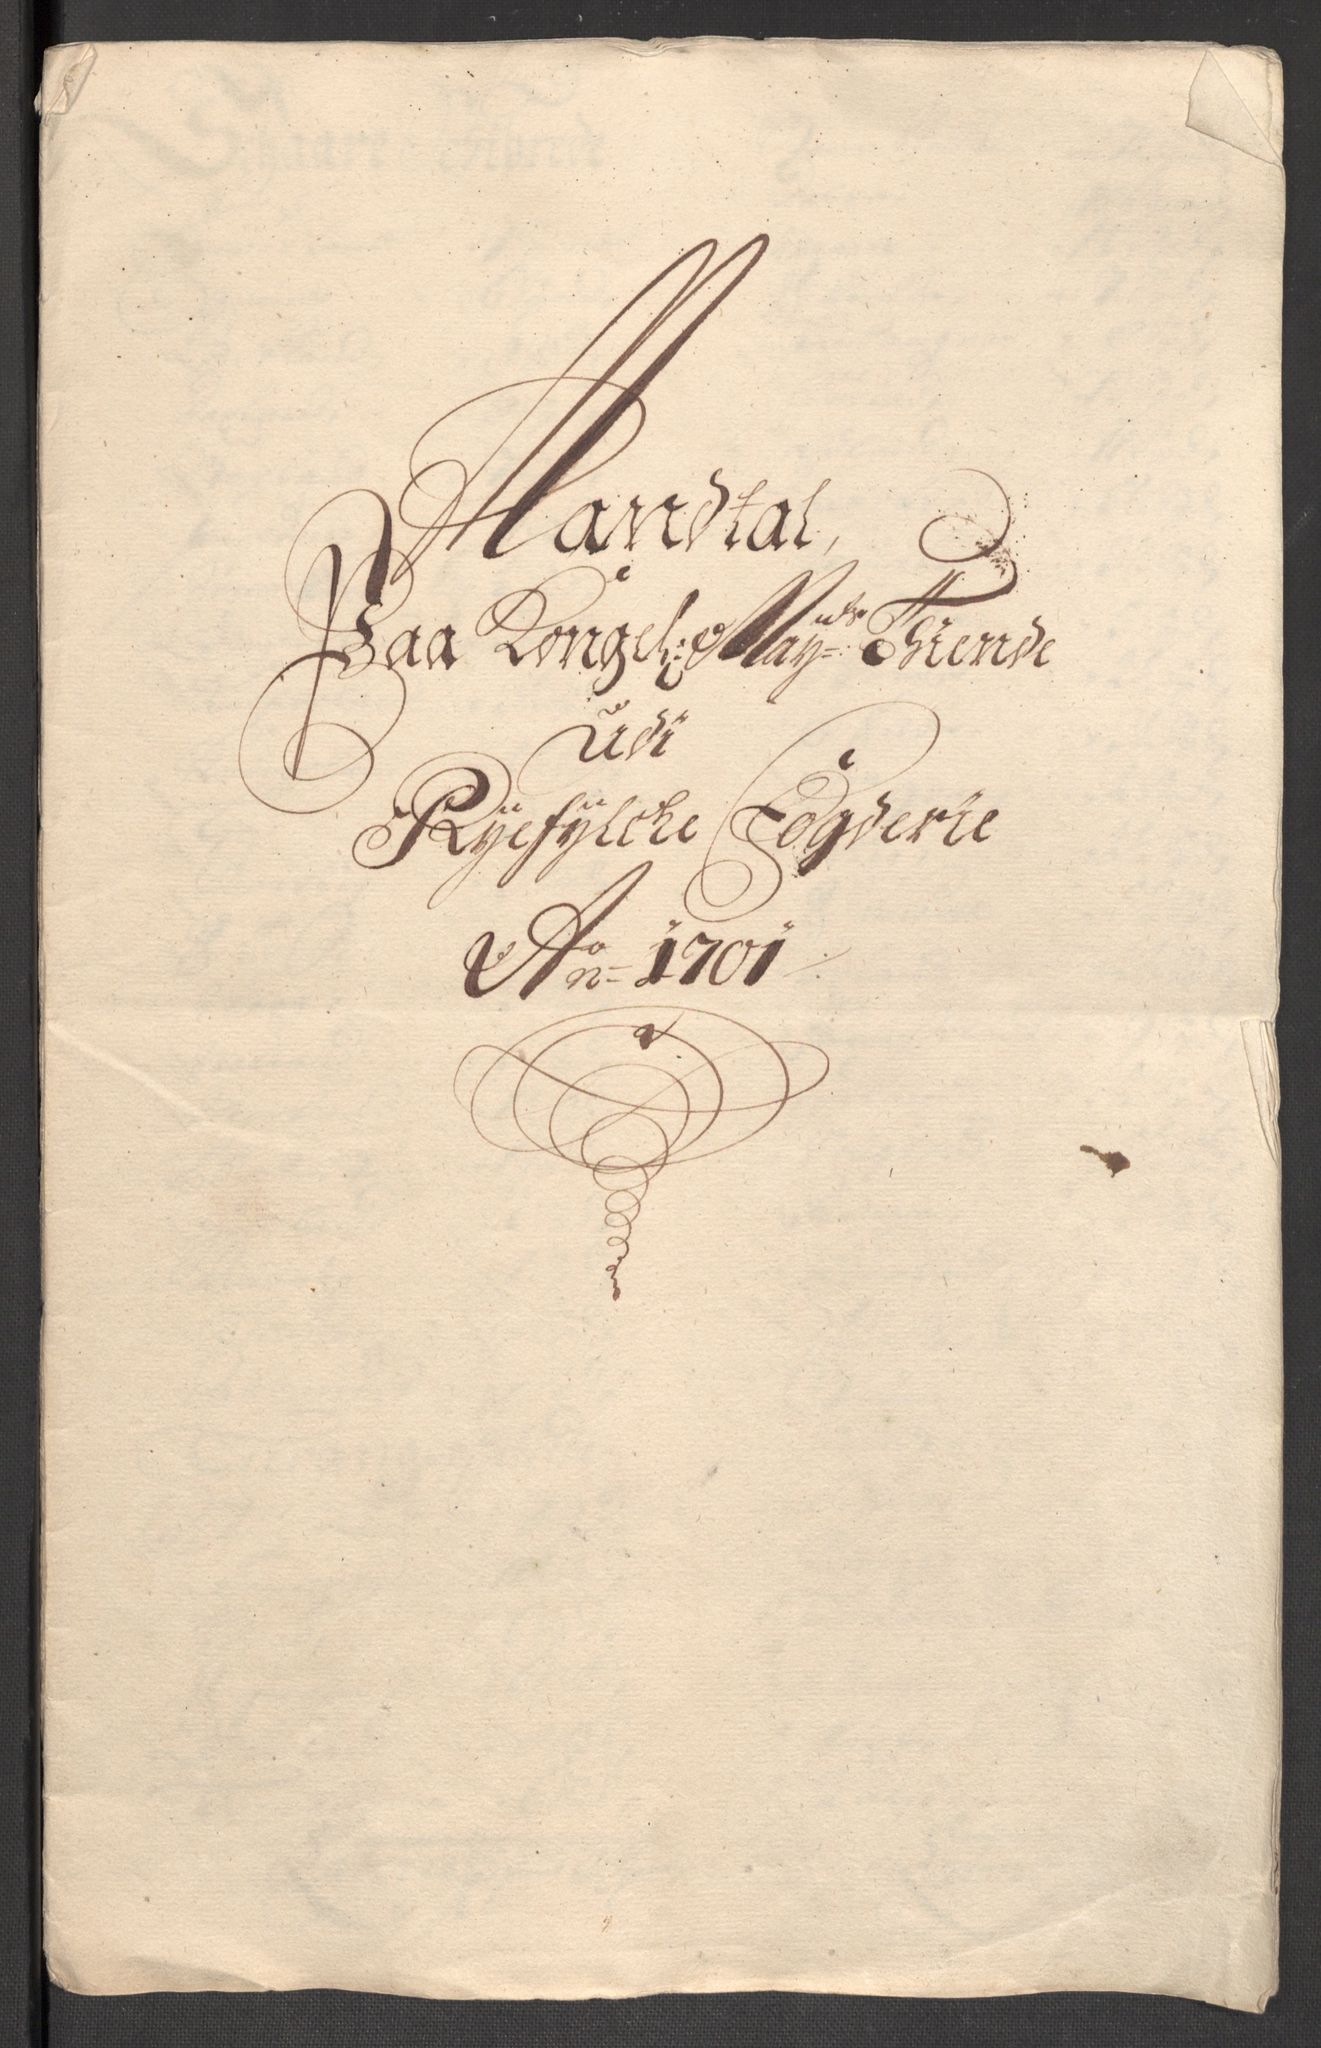 Mandtal,
Paa Kongel: May:ts Thiende
udi
Ryefylcke Fogderie
Ao 1701